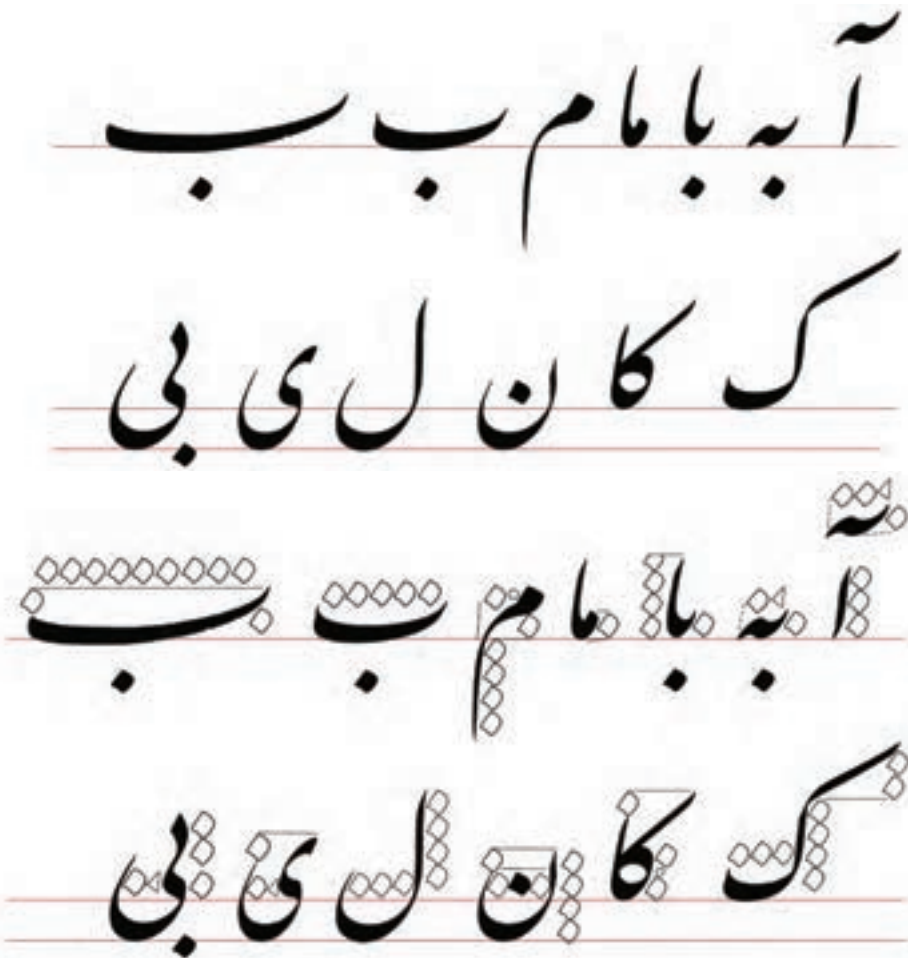 آ به با ما م ب ب
ک کا ن ل ی بی
آ به با ما م ب ب
ک کا ن ل ی بی